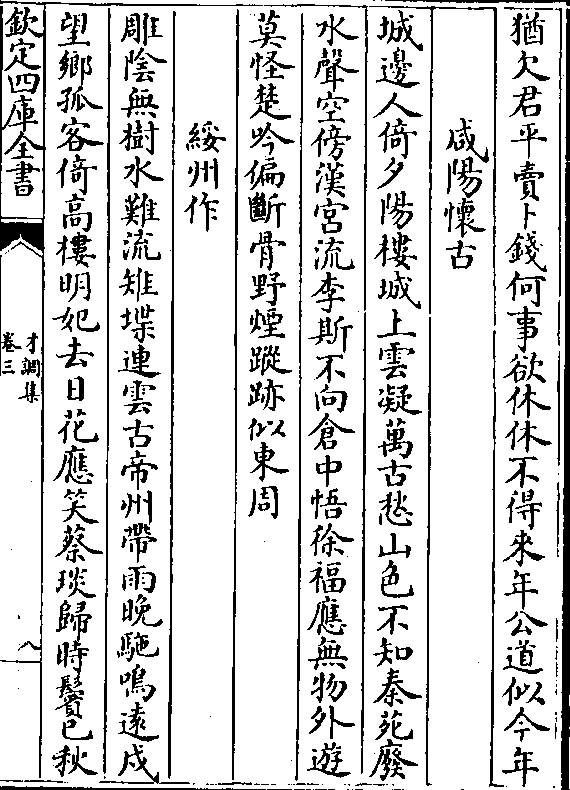 猶欠君平賣卜錢何事欲休休不得來年公道似今年
咸陽懷古
城邊人倚夕陽樓城上雲凝萬古愁山色不知秦苑廢
水聲空傍漢宮流李斯不向倉中悟徐福應無物外遊
莫怪楚吟偏斷骨野煙蹤跡似東周
綏州作
雕陰無樹水難流雉堞連雲古帝州帶雨晚駞鳴遠戍
望鄉孤客倚高樓明妃去日花應笑蔡琰歸時鬢已秋
欽定四庫全書
才調集
卷三
八